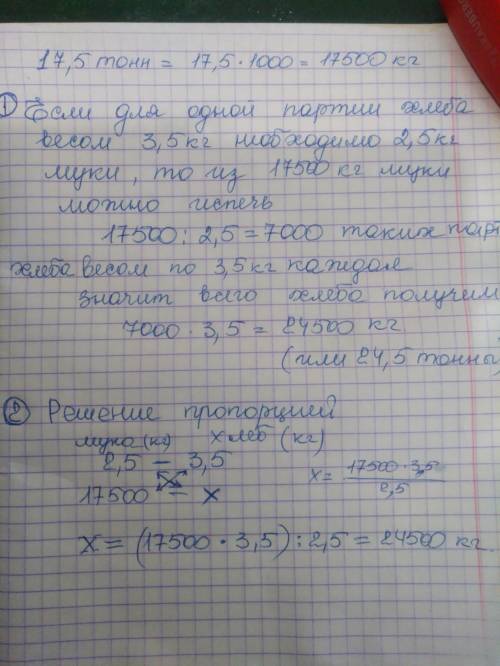 17,5 тонн = 17,5 · 1000 = 17500 кг
1) Если для одной партии хлеба
весом 3,5 кг необходимо 2,5 кг
муки, то из 17500 кг муки
можно испечь
17500 : 2,5 = 7000 таких парт
хлеба весом по 3,5 кг каждая
значит всего хлеба получим
7000 · 3,5 = 24500 кг
(или 24,5 тонны)
2) Решение пропорцией
мука (кг) хлеб (кг)
2,5 – 3,5
17500 – x
x = 17500 · 3,5 / 2,5
x = (17500 · 3,5) : 2,5 = 24500 кг.